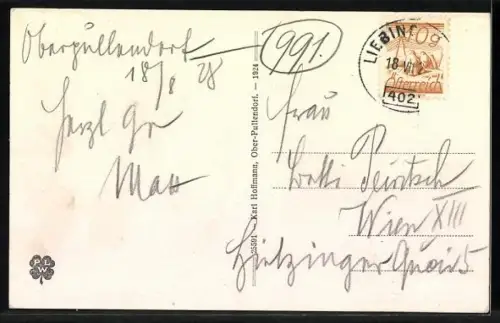 Oberpullendorf
991.
18/8 28
Herzl Gr
Max
25591 — Karl Hoffmann, Ober-Pullendorf. — 1924
P L W
LIEBING
18. VIII
402
Österreich
Frau
Wien XIII
Hietzinger Quai 5